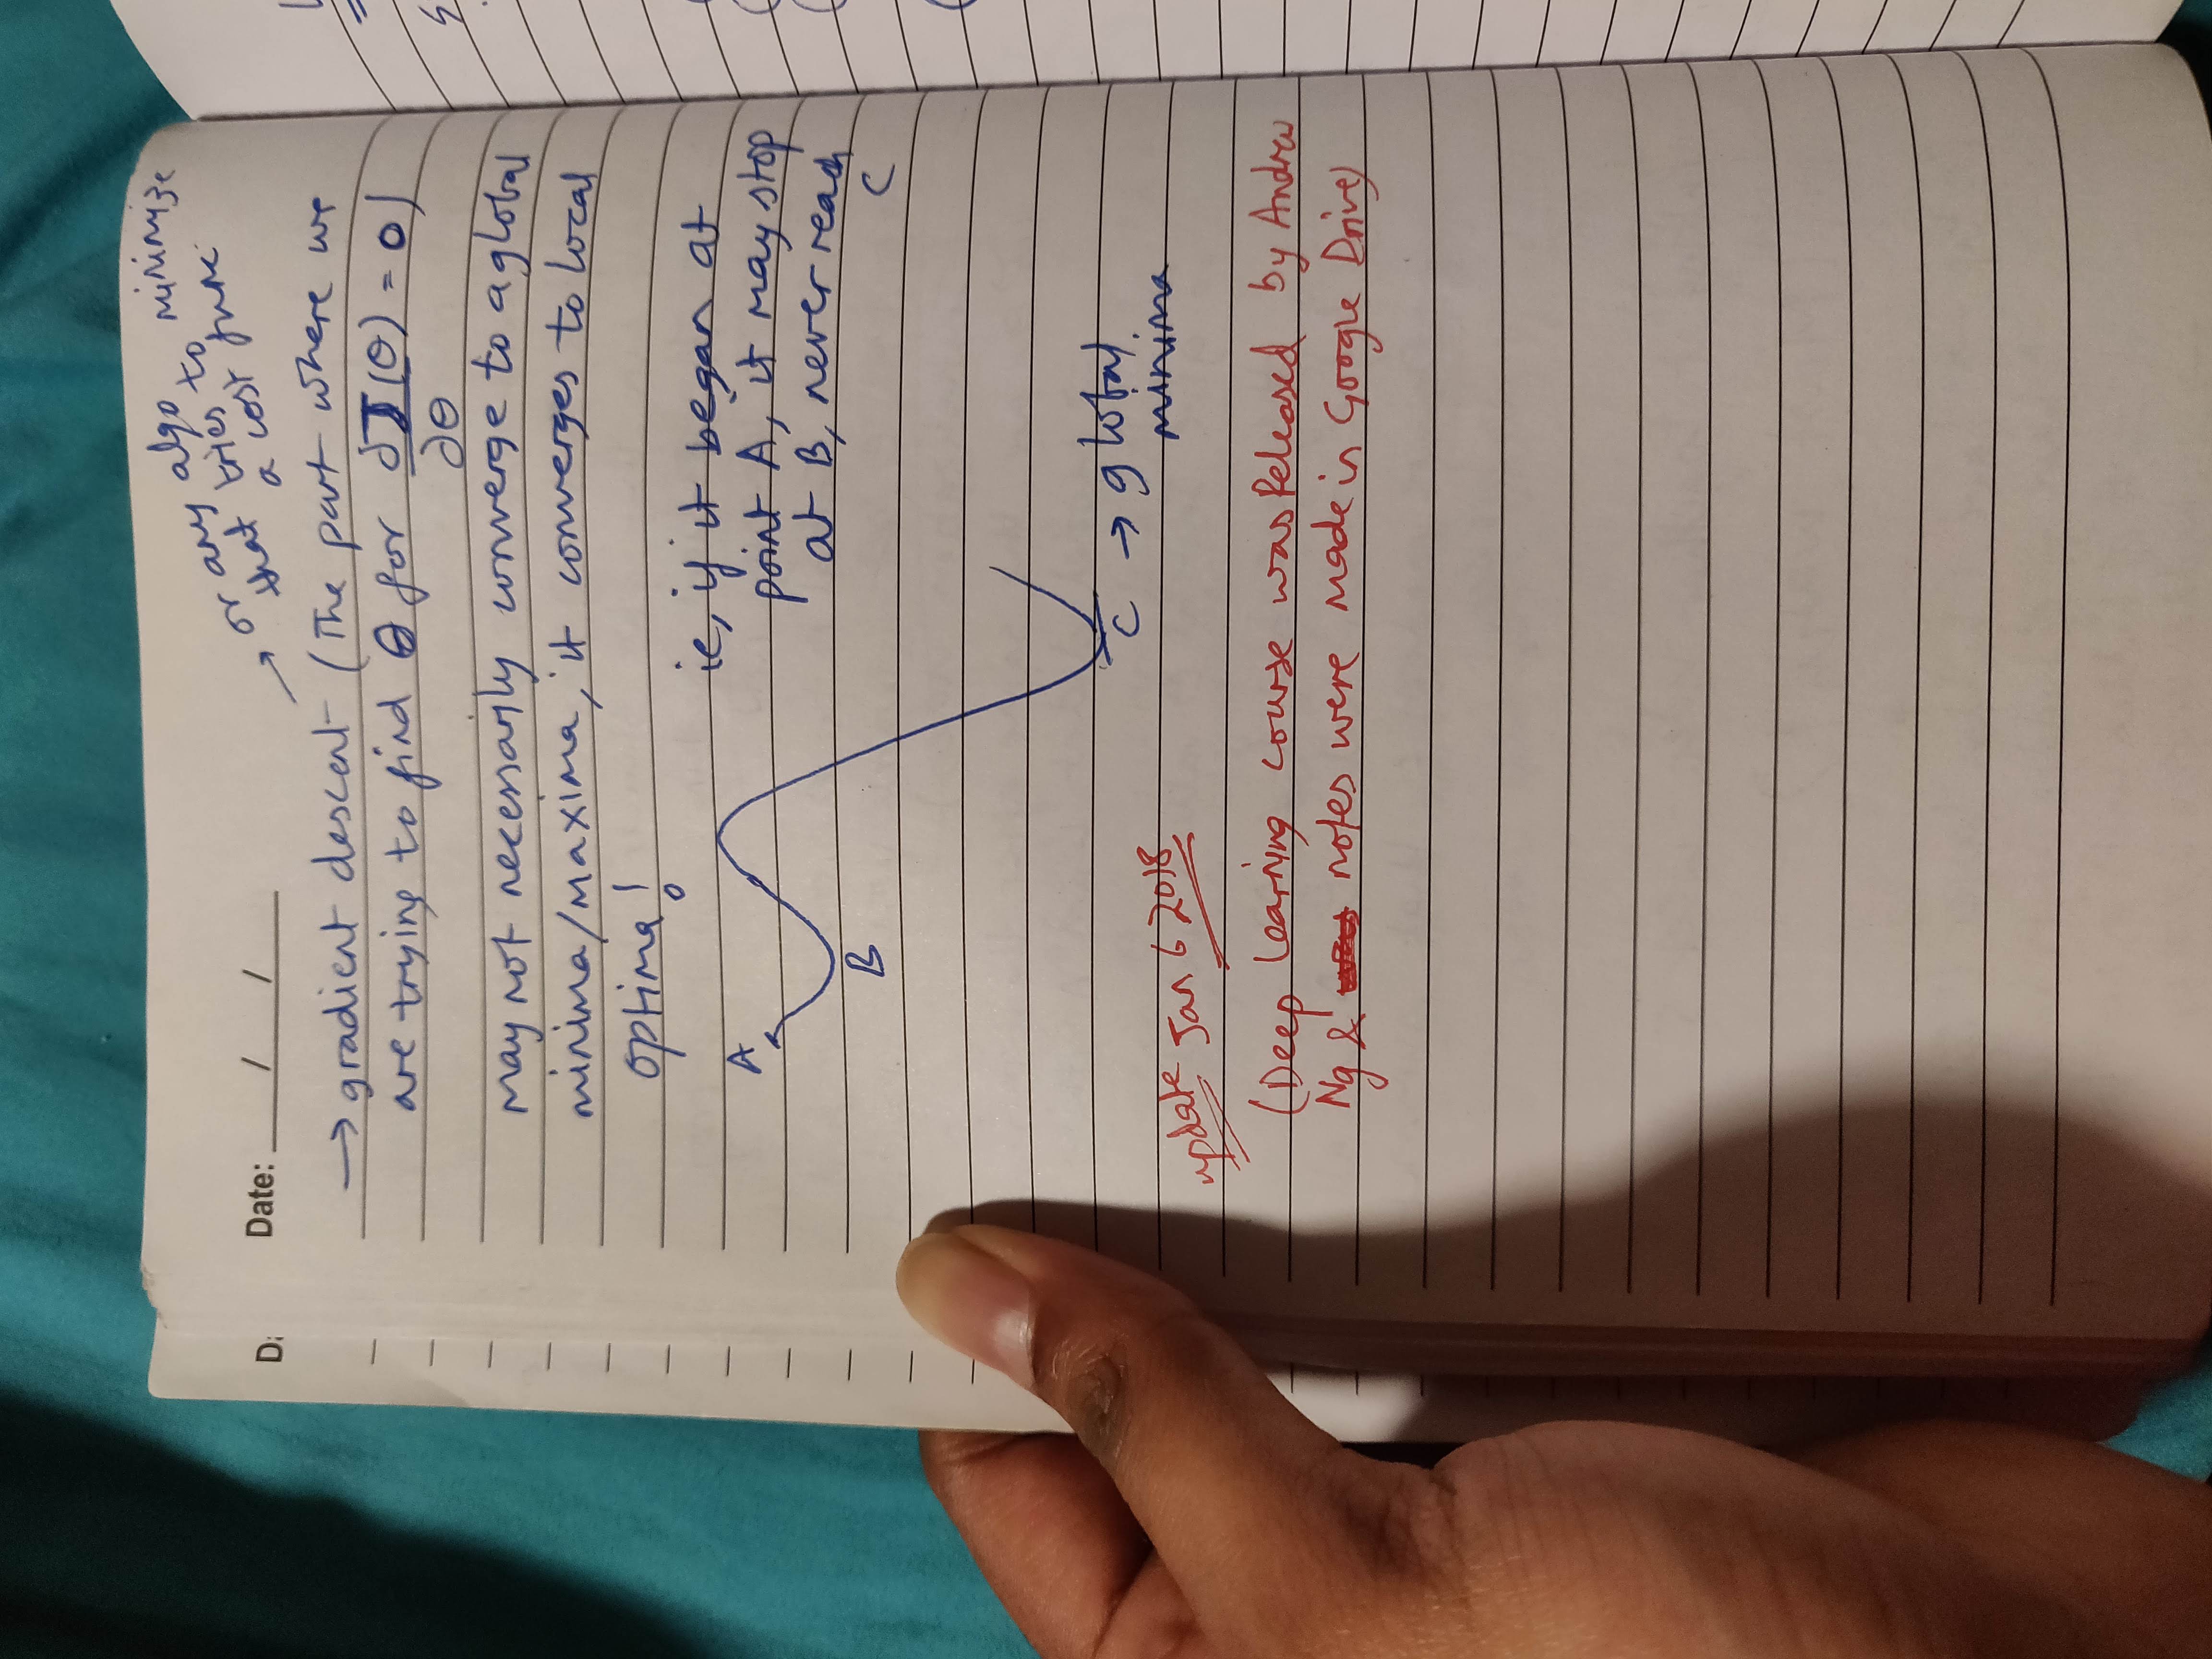 Date: ___/___/___
→ or any algo
that tries to minimize
a cost func
→ gradient descent (The part where we
are trying to find θ for ∂J(θ) = 0)
∂θ
may not necessarily converge to a global
minima/maxima, it converges to local
optima!
ie, if it began at
point A, it may stop
at B, never reach
C
A
B
C → global
minima
update Jan 6 2018
(Deep learning course was Released by Andrew
Ng & notes were made in Google Drive)